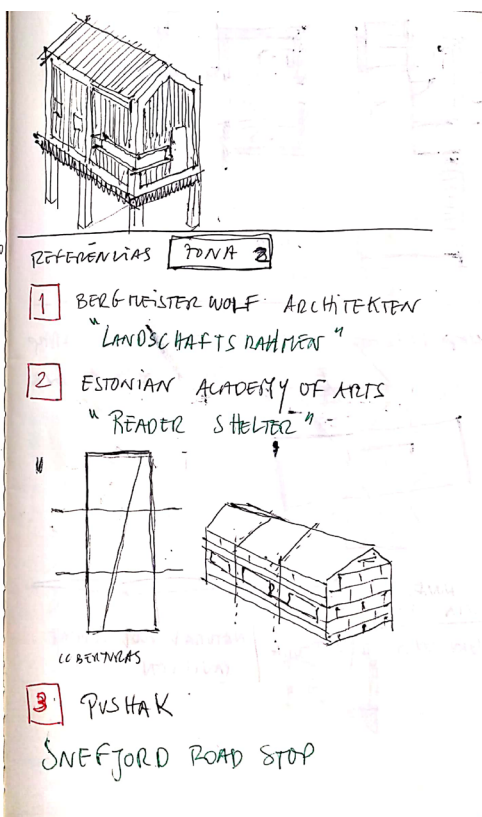 REFERÊNCIAS ZONA 2
1 BERGMEISTER WOLF ARCHITEKTEN
"LANDSCHAFTSRAHMEN"
2 ESTONIAN ACADEMY OF ARTS
"READER SHELTER"
COBERTURAS
3 PUSHAK
SNEFJORD ROAD STOP